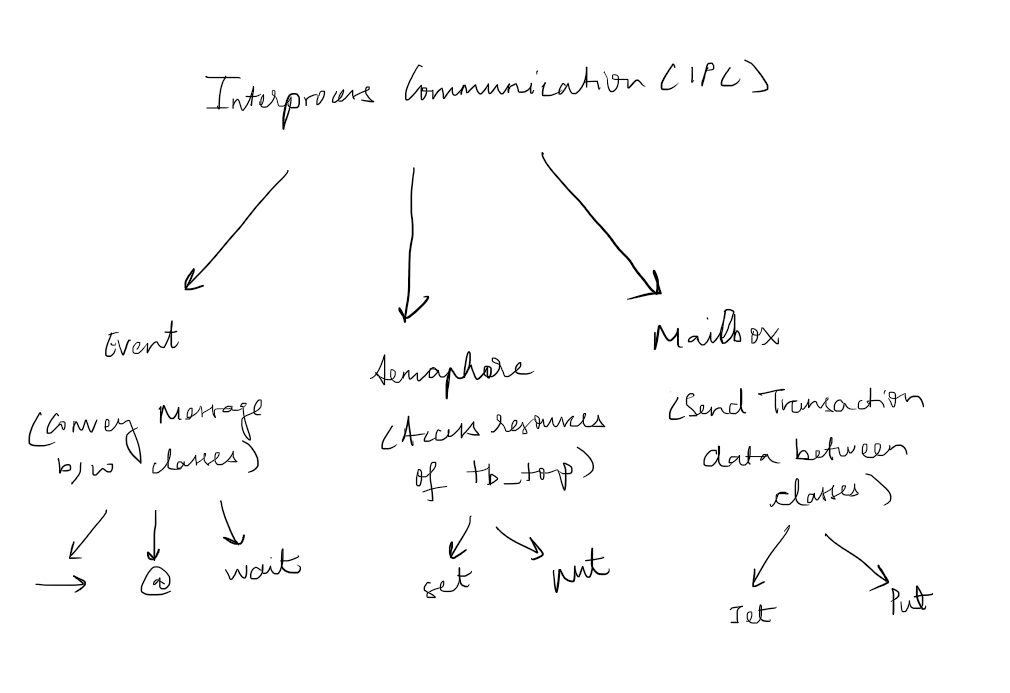 Interprocess Communication (IPC)
Event
(Convey Message
b/w classes)
→
@
wait
Semaphore
(Access resources
of tb_top)
get
put
Mailbox
(Send Transaction
data between
classes)
Get
Put